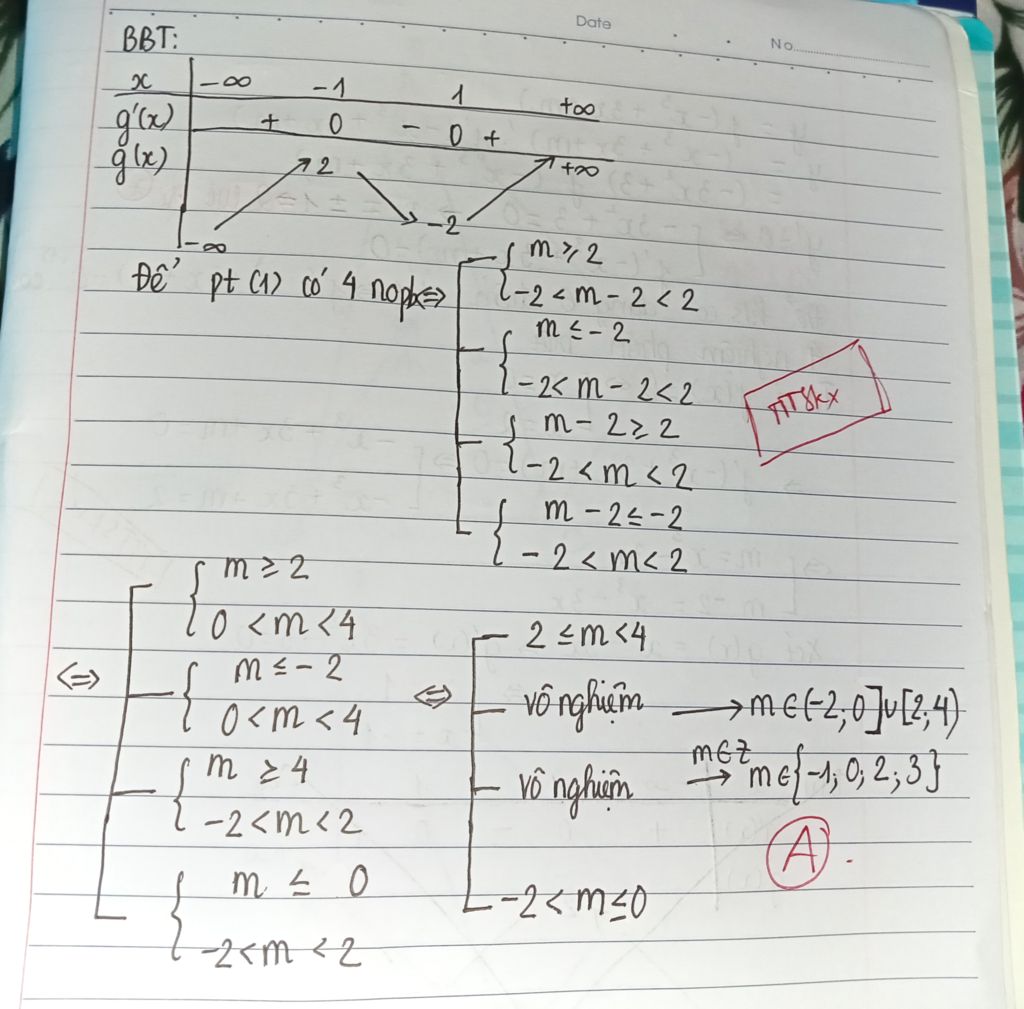 Date
No.
BBT:
x -∞ -1 1 +∞
g'(x) + 0 - 0 +
g(x) -∞ ↗ 2 ↘ -2 ↗ +∞
Để pt (1) có 4 nopb ⇔
m ≥ 2
-2 < m - 2 < 2
m ≤ -2
-2 < m - 2 < 2
m - 2 ≥ 2
-2 < m < 2
m - 2 ≤ -2
-2 < m < 2
⇔
m ≥ 2
0 < m < 4
m ≤ -2
0 < m < 4
m ≥ 4
-2 < m < 2
m ≤ 0
-2 < m < 2
⇔
2 ≤ m < 4
vô nghiệm
vô nghiệm
-2 < m ≤ 0
→ m ∈ (-2; 0] ∪ [2; 4)
m∈Z
→ m ∈ {-1; 0; 2; 3}
A.